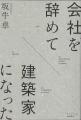 会社を
辞めて
建築家
になった
坂牛卓